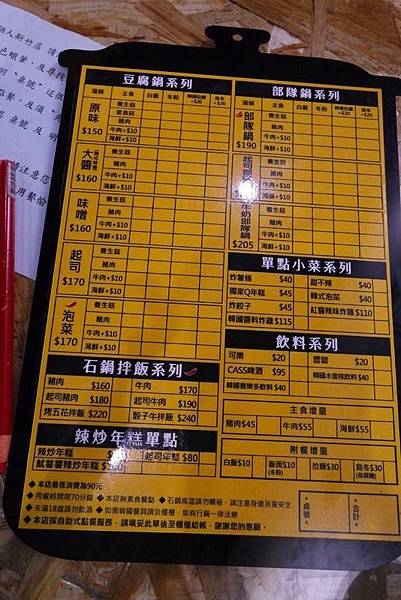 豆腐鍋系列
湯頭 主食 白飯 冬粉 韓國拉麵+$20 烏冬+$20
原味 $150
養生菇
素食菇
豬肉
牛肉+$10
海鮮+$10
大醬 $160
養生菇
豬肉
牛肉+$10
海鮮+$10
味噌 $160
養生菇
豬肉
牛肉+$10
海鮮+$10
起司 $170
養生菇
豬肉
牛肉+$10
海鮮+$10
泡菜 $170
養生菇
豬肉
牛肉+$10
海鮮+$10
石鍋拌飯系列
豬肉 $160 牛肉 $170
起司豬肉 $180 起司牛肉 $190
烤五花拌飯 $220 骰子牛拌飯 $240
辣炒年糕單點
辣炒年糕 起司年糕 $80
魷薯薯辣炒年糕
部隊鍋系列
湯頭 主食 白飯 冬粉 韓國拉麵+$20 烏冬+$20
部隊鍋 $190
養生菇
豬肉
牛肉+$10
海鮮+$10
養生菇
豬肉
牛肉+$10
海鮮+$10
牛奶部隊鍋 $205
養生菇
豬肉
牛肉+$10
海鮮+$10
單點小菜系列
炸薯條 $40 甜不辣 $40
獨家Q年糕 $45 韓式泡菜 $40
炸餃子 $45 紅醬辣味炸雞 $110
韓國醬料炸雞 $115
飲料系列
可樂 $20 雪碧 $20
CASS啤酒 $95 韓國水蜜桃飲料 $40
韓國養樂多飲料 $40
主食增量
豬肉$45 牛肉$55 海鮮$55
附餐增量
白飯$10 春雨$10 (冬粉) 拉麵$30 烏冬$30 (烏龍麵)
◆本店最低消費為90元
◆用餐時間限70分鐘 ◆本店無素食餐點 ◆石鍋高溫請勿觸碰，請注意身邊孩童安全
◆未滿18歲請勿飲酒 ◆如需韓國餐具請洽櫃檯，如有行竊一律法辦
◆本店採自助式點餐服務，請填妥此單後至櫃檯結帳，謝謝您的惠顧。
桌號： 合計：